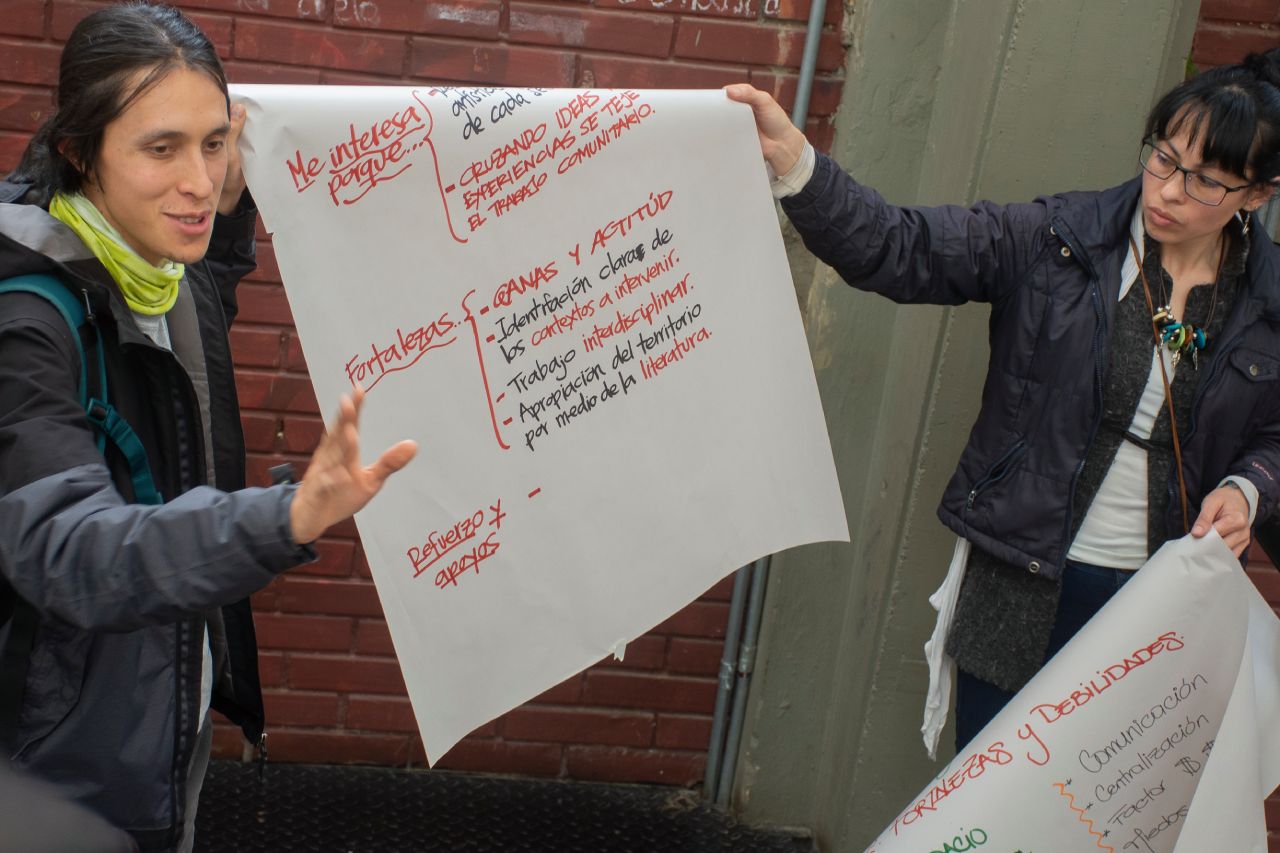 artístic
de cada se
Me interesa
porque...
- CRUZANDO IDEAS
EXPERIENCIAS SE TEJE
EL TRABAJO COMUNITARIO.
Fortalezas...
- GANAS Y ACTITÚD
- Identifación clara de
los contextos a intervenir.
- Trabajo interdisciplinar.
- Apropiación del territorio
por medio de la literatura.
Refuerzo y -
apoyos
FORTALEZAS y DEBILIDADES.
* Comunicación
* Centralización
* Factor $
* Miedos
DACIO